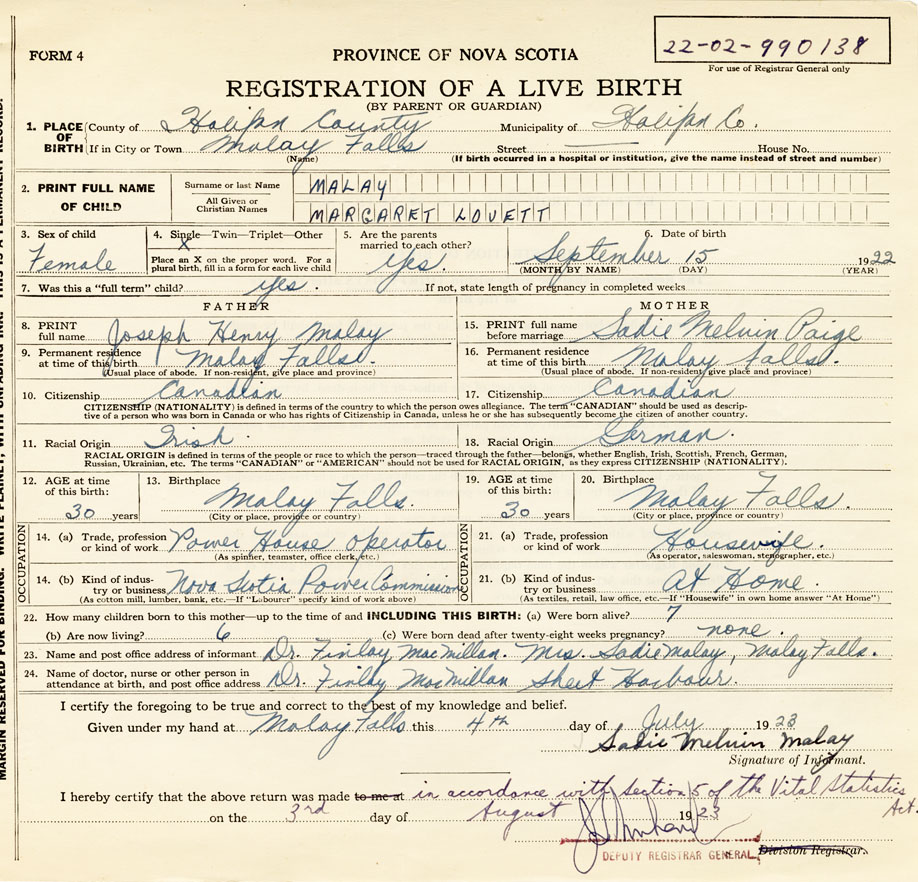 22-02-990138
FORM 4 PROVINCE OF NOVA SCOTIA For use of Registrar General only
REGISTRATION OF A LIVE BIRTH
(BY PARENT OR GUARDIAN)
1. PLACE OF BIRTH County of Halifax County Municipality of Halifax Co.
If in City or Town Malay Falls Street House No.
(Name) (If birth occurred in a hospital or institution, give the name instead of street and number)
2. PRINT FULL NAME OF CHILD Surname or last Name MALAY
All Given or Christian Names MARGARET LOVETT
3. Sex of child Female
4. Single—Twin—Triplet—Other X
Place an X on the proper word. For a plural birth, fill in a form for each live child
5. Are the parents married to each other? yes.
6. Date of birth September 15 1922
(MONTH BY NAME) (DAY) (YEAR)
7. Was this a "full term" child? yes. If not, state length of pregnancy in completed weeks
FATHER
8. PRINT full name Joseph Henry Malay
9. Permanent residence at time of this birth Malay Falls.
(Usual place of abode. If non-resident, give place and province)
10. Citizenship Canadian
MOTHER
15. PRINT full name before marriage Sadie Melvin Paige
16. Permanent residence at time of this birth Malay falls.
(Usual place of abode. If non-resident, give place and province)
17. Citizenship Canadian
CITIZENSHIP (NATIONALITY) is defined in terms of the country to which the person owes allegiance. The term "CANADIAN" should be used as descrip-
tive of a person who was born in Canada or who has rights of Citizenship in Canada, unless he or she has subsequently become the citizen of another country.
11. Racial Origin Irish. 18. Racial Origin German.
RACIAL ORIGIN is defined in terms of the people or race to which the person—traced through the father—belongs, whether English, Irish, Scottish, French, German,
Russian, Ukrainian, etc. The terms "CANADIAN" or "AMERICAN" should not be used for RACIAL ORIGIN, as they express CITIZENSHIP (NATIONALITY).
12. AGE at time of this birth: 30 years
13. Birthplace Malay Falls.
(City or place, province or country)
19. AGE at time of this birth: 30 years
20. Birthplace Malay Falls.
(City or place, province or country)
OCCUPATION
14. (a) Trade, profession or kind of work Power House operator
(As spinfer, teamster, office clerk, etc.)
14. (b) Kind of indus-try or business Nova Scotia Power Commission
(As cotton mill, lumber, bank, etc.—If "Labourer" specify kind of work above)
OCCUPATION
21. (a) Trade, profession or kind of work Housewife.
(As operator, saleswoman, stenographer, etc.)
21. (b) Kind of indus-try or business At Home.
(As textiles, retail, law office, etc.—If "Housewife" in own home answer "At Home")
22. How many children born to this mother—up to the time of and INCLUDING THIS BIRTH: (a) Were born alive? 7
(b) Are now living? 6 (c) Were born dead after twenty-eight weeks pregnancy? none.
23. Name and post office address of informant Dr. Finlay MacMillan. Mrs. Sadie Malay, Malay Falls.
24. Name of doctor, nurse or other person in attendance at birth, and post office address Dr. Finlay Macmillan Sheet Harbour.
I certify the foregoing to be true and correct to the best of my knowledge and belief.
Given under my hand at Malay Falls this 4th day of July 1923
Sadie Melvin Malay
Signature of Informant.
I hereby certify that the above return was made to me at in accordance with section 5 of the Vital Statistics Act.
on the 3rd day of August 1923
DEPUTY REGISTRAR GENERAL Division Registrar.